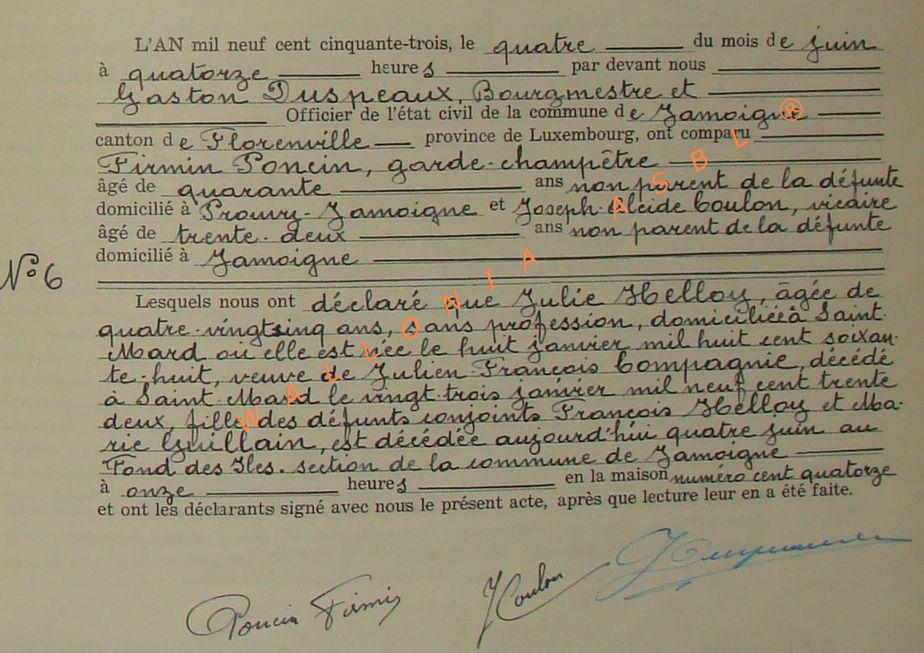 L'AN mil neuf cent cinquante-trois, le quatre du mois de juin
à quatorze heures par devant nous
Gaston Duspeaux, Bourgmestre et
Officier de l'état civil de la commune de Jamoigne
canton de Florenville province de Luxembourg, ont comparu
Firmin Poncin, garde-champêtre
âgé de quarante ans non parent de la défunte
domicilié à Prouvy-Jamoigne et Joseph-Alcide Coulon, vicaire
âgé de trente-deux ans non parent de la défunte
domicilié à Jamoigne
N° 6
Lesquels nous ont déclaré que Julie Helloy, âgée de
quatre-vingt cinq ans, sans profession, domiciliée à Saint-
Mard où elle est née le huit janvier mil huit cent soixan-
te-huit, veuve de Julien-François Compagnie, décédé
à Saint-Mard le vingt-trois janvier mil neuf cent trente
deux, fille des défunts conjoints François Helloy et Ma-
rie Guillain, est décédée aujourd'hui quatre juin au
Fond des Iles. section de la commune de Jamoigne
à onze heures en la maison numéro cent quatorze
et ont les déclarants signé avec nous le présent acte, après que lecture leur en a été faite.
Poncin Firmin JCoulon
WALLONIA ASBL ®